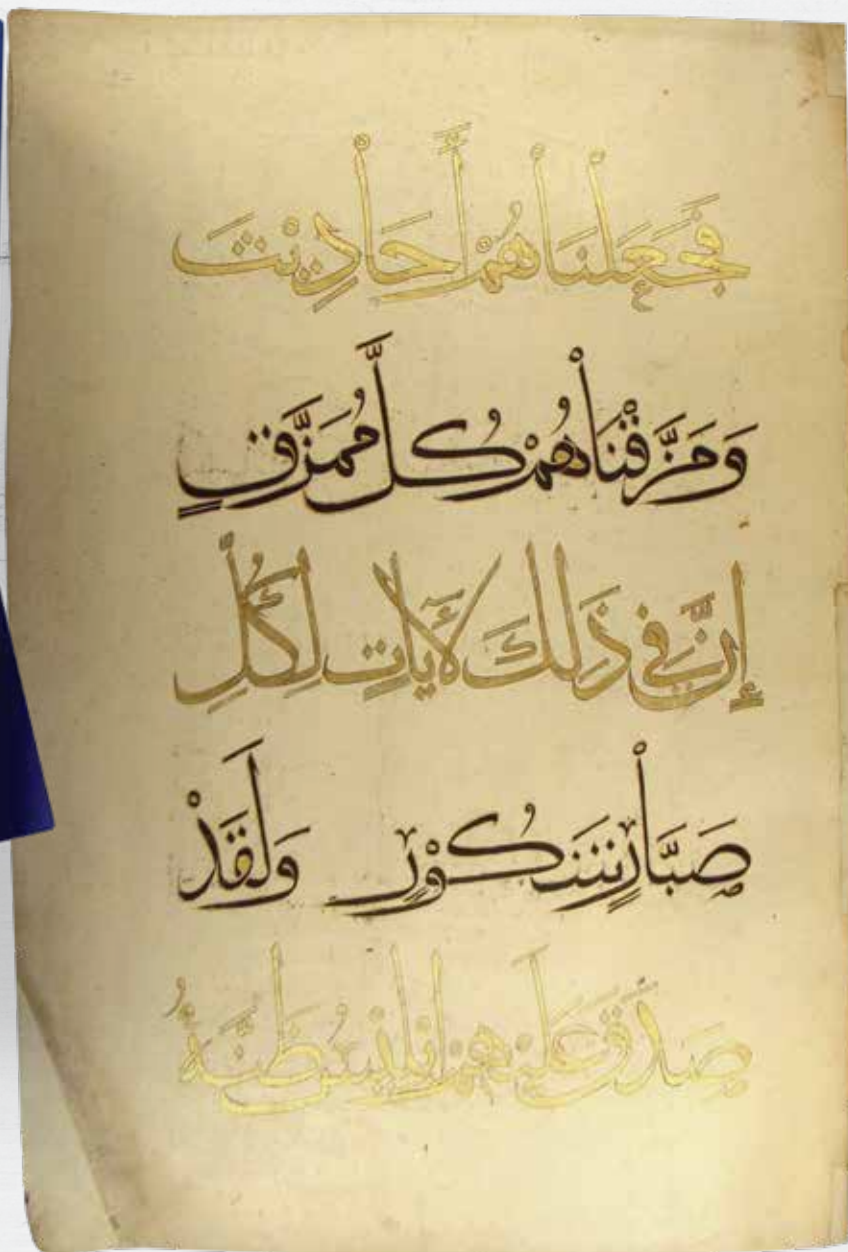 فَجَعَلْنَاهُمْ أَحَادِيثَ
وَمَزَّقْنَاهُمْ كُلَّ مُمَزَّقٍ
إِنَّ فِي ذَلِكَ لَآيَاتٍ لِكُلِّ
صَبَّارٍ شَكُورٍ وَلَقَدْ
صَدَّقَ عَلَيْهِمْ إِبْلِيسُ ظَنَّهُ